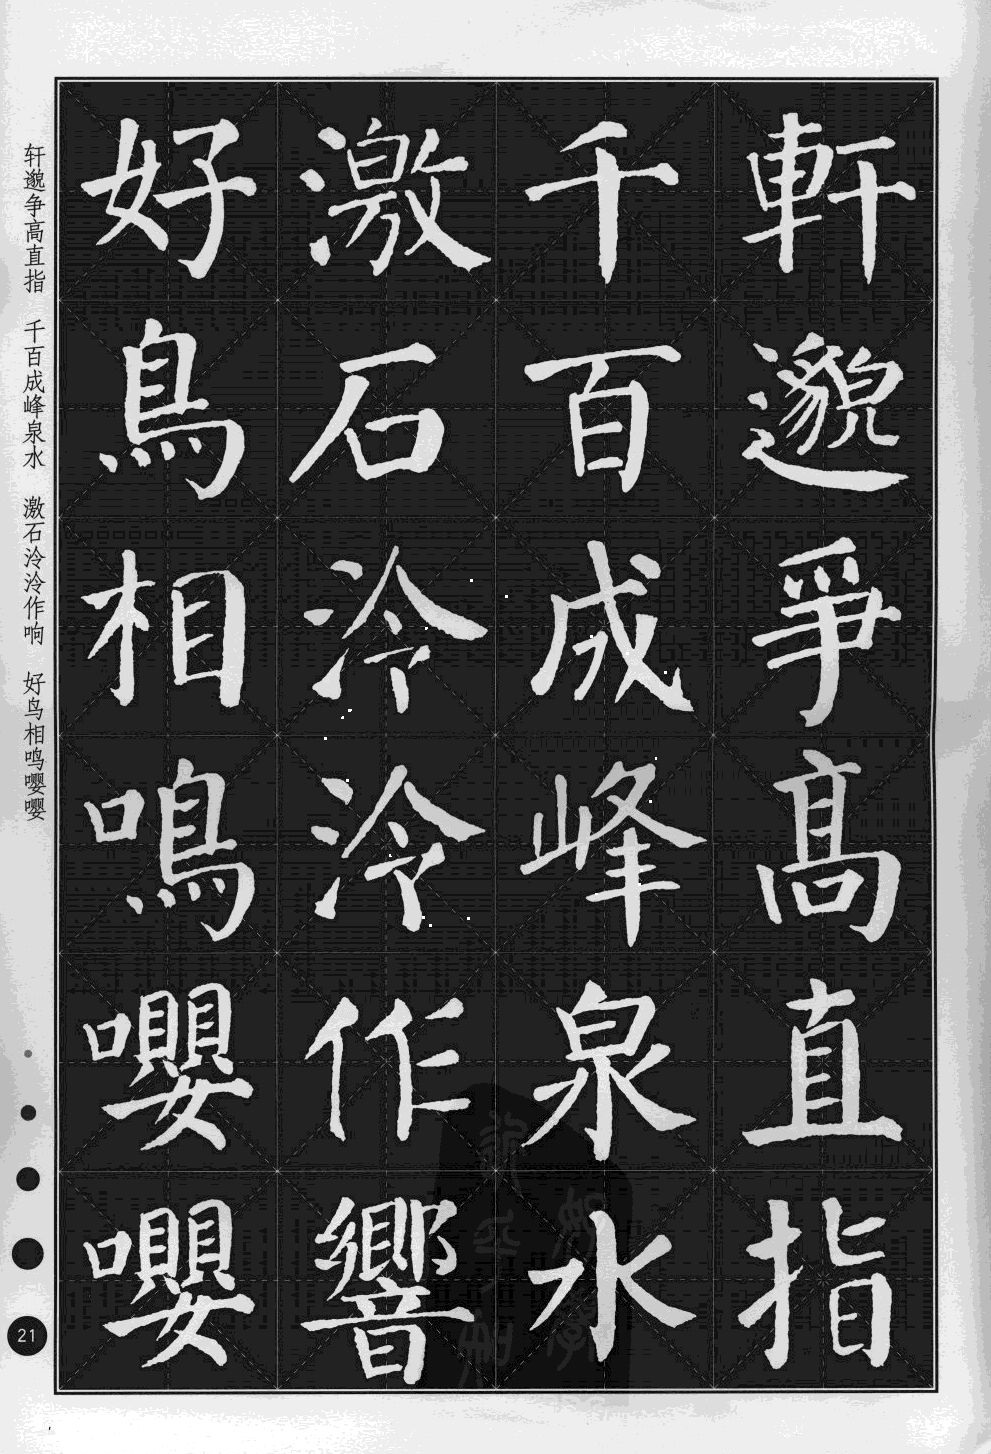 軒邈爭高直指
千百成峰泉水
激石泠泠作響
好鳥相鳴嚶嚶
轩邈争高直指 千百成峰泉水 激石泠泠作响 好鸟相鸣嘤嘤
21